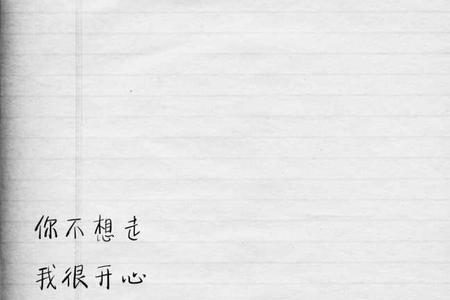 你不想走
我很开心